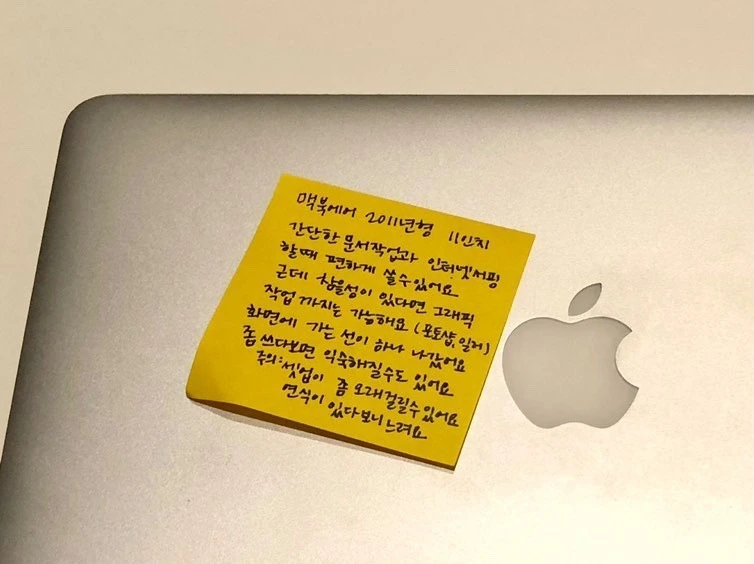 맥북에어 2011년형 11인치
간단한 문서작업과 인터넷서핑
할때 편하게 쓸수있어요
근데 참을성이 있다면 그래픽
작업 까지는 가능해요 (포토샵,일러)
화면에 가는 선이 하나 나갔어요
좀 쓰다보면 익숙해질수도 있어요
주의:셋업이 좀 오래걸릴수있어요
연식이 있다보니 느려요